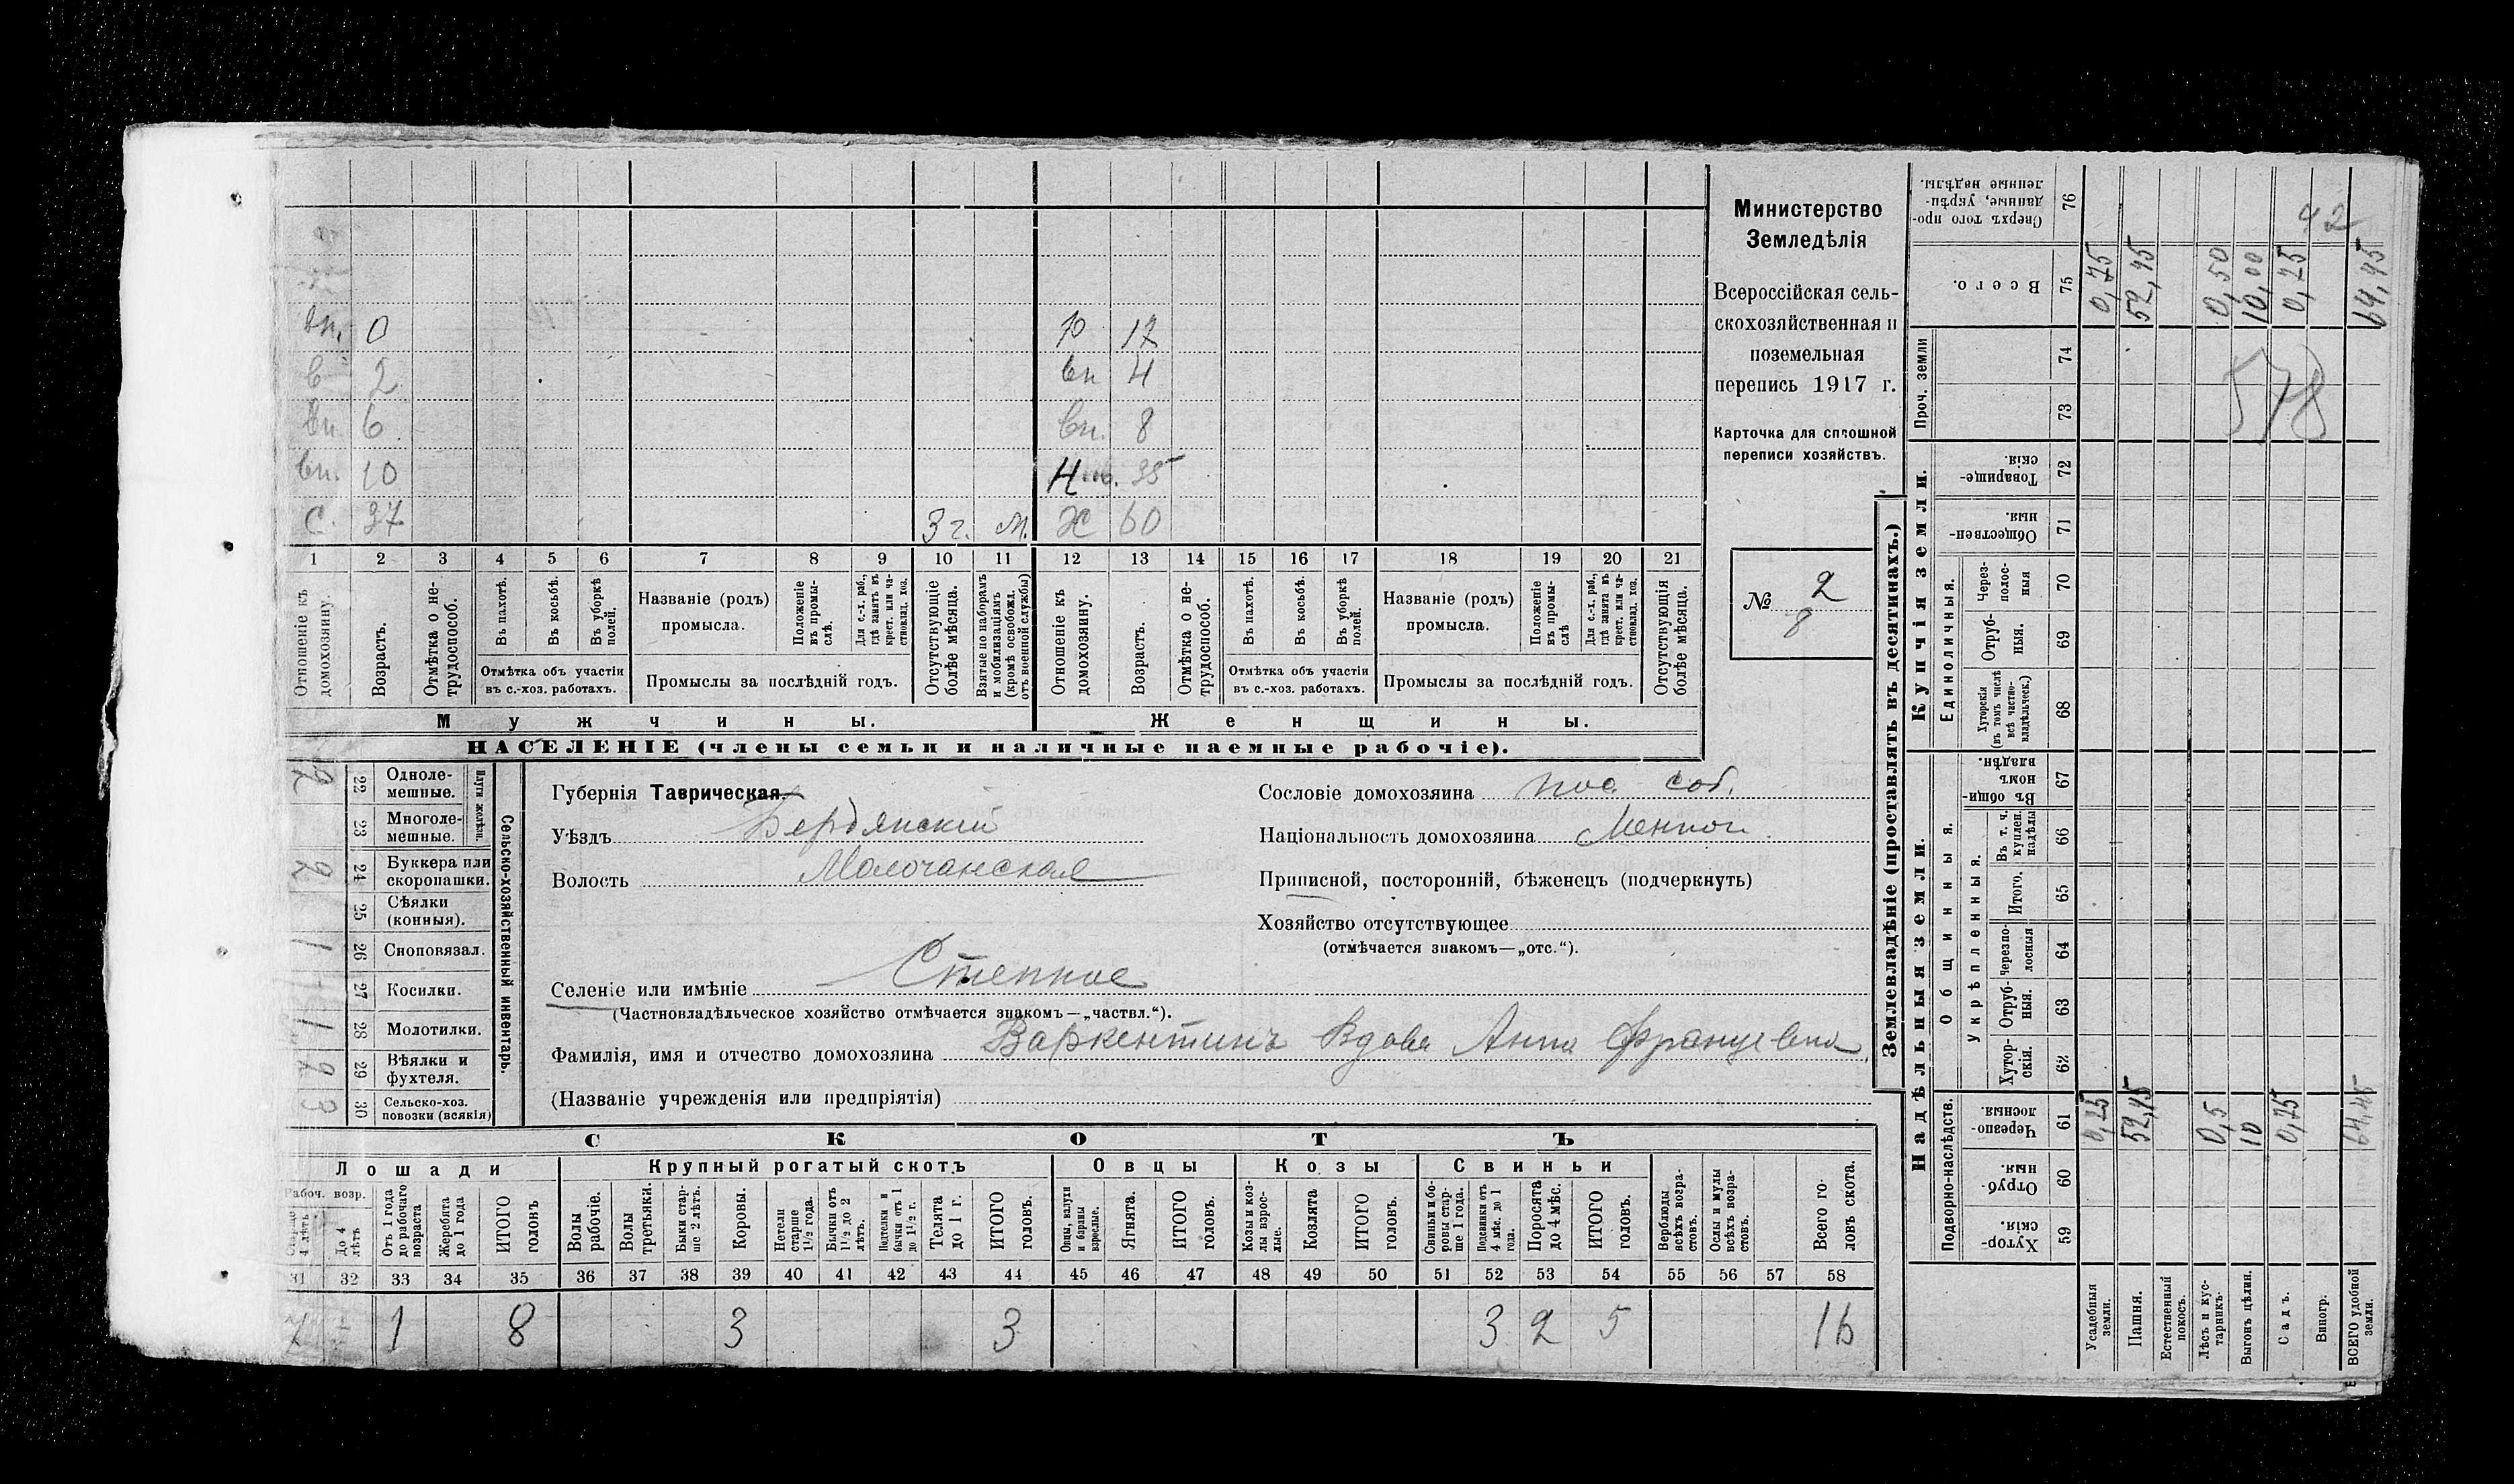 Министерство
Земледѣлія
Всероссійская сель-
скохозяйственная и
поземельная
перепись 1917 г.
Карточка для сплошной
переписи хозяйствъ.
№ 2
8
вп. 0 10 17
в 2 вп 4
вп. 6 вп. 8
вп. 10 Н 35
С. 37 3 г. М. Ж 60
1 2 3 4 5 6 7 8 9 10 11 12 13 14 15 16 17 18 19 20 21
Отношеніе къ домохозяину.
Возрастъ.
Отмѣтка о не-трудоспособ.
Въ пахотѣ.
Въ косьбѣ.
Въ уборкѣ полей.
Отмѣтка объ участіи въ с.-хоз. работахъ.
Названіе (родъ) промысла.
Положеніе въ промы-слѣ.
Для с.-х. раб., гдѣ занятъ въ крест. или ча-стновлад. хоз.
Промыслы за послѣдній годъ.
Отсутствующіе болѣе мѣсяца.
Взятые по наборамъ и мобилизаціямъ (кромѣ освобожд. отъ военной службы)
Отношеніе къ домохозяину.
Возрастъ.
Отмѣтка о не-трудоспособ.
Въ пахотѣ.
Въ косьбѣ.
Въ уборкѣ полей.
Отмѣтка объ участіи въ с.-хоз. работахъ.
Названіе (родъ) промысла.
Положеніе въ промы-слѣ
Для с.-х. раб., гдѣ занята въ крест. или ча-стновлад. хоз.
Промыслы за послѣдній годъ.
Отсутствующія болѣе мѣсяца.
Мужчины. Женщины.
НАСЕЛЕНІЕ (члены семьи и наличные наемные рабочіе).
Сельско-хозяйственный инвентарь.
Плуги желѣзн.
2 22 Одноле-мешные.
23 Многоле-мешные.
2 24 Буккера или скоропашки.
25 Сѣялки (конныя).
1 26 Сноповязал.
27 Косилки.
1 28 Молотилки.
2 29 Вѣялки и фухтеля.
3 30 Сельско-хоз. повозки (всякія)
Губернія Таврическая.
Уѣздъ Бердянскій
Волость Молочанская
Селеніе или имѣніе Степное
(Частновладѣльческое хозяйство отмѣчается знакомъ—„частвл.“).
Фамилія, имя и отчество домохозяина Варкентинъ Вдова Анна Францевна
(Названіе учрежденія или предпріятія)
Сословіе домохозяина пос. соб.
Національность домохозяина Меннон.
Приписной, посторонній, бѣженецъ (подчеркнуть)
Хозяйство отсутствующее
(отмѣчается знакомъ—„отс.“).
СКОТЪ
Лошади Крупный рогатый скотъ Овцы Козы Свиньи
Рабоч. возр.
Старше 4 лѣтъ
До 4 лѣтъ
Отъ 1 года до рабочаго возраста
Жеребята до 1 года
ИТОГО головъ
Волы рабочіе.
Волы третьяки.
Быки стар-ше 2 лѣтъ.
Коровы.
Нетели старше 1½ года.
Бычки отъ 1½ до 2 лѣтъ.
Подтелки и бычки отъ 1 до 1½ г.
Телята до 1 г.
ИТОГО головъ.
Овцы, валухи и бараны взрослые.
Ягнята.
ИТОГО головъ.
Козы и коз-лы взрос-лые.
Козлята
ИТОГО головъ.
Свиньи и бо-ровы стар-ше 1 года.
Подсвинки отъ 4 мѣс. до 1 года.
Поросята до 4 мѣс.
ИТОГО головъ.
Верблюды всѣхъ возра-стовъ.
Ослы и мулы всѣхъ возра-стовъ.
Всего го-ловъ скота.
31 32 33 34 35 36 37 38 39 40 41 42 43 44 45 46 47 48 49 50 51 52 53 54 55 56 57 58
7 1 8 3 3 3 2 5 16
Землевладѣніе (проставлять въ десятинахъ.)
Надѣльныя земли. Купчія земли. Проч. земли
Подворно-наслѣдств. Общинныя. Единоличныя.
Укрѣпленныя.
Хутор-скія. 59
Отруб-ныя. 60
Черезпо-лосныя. 61
Хутор-скія. 62
Отруб-ныя. 63
Черезпо-лосныя 64
Итого. 65
Въ т. ч. куплен. надѣлы 66
Въ общи-номъ владѣн. 67
Хуторскія (въ томъ числѣ всѣ частно-владѣльческ.) 68
Отруб-ныя. 69
Через-полос-ныя 70
Обществен-ныя. 71
Товарище-скія. 72
73
74
Всего. 75
Сверхъ того про-данные, укрѣп-ленные надѣлы. 76
Усадебныя земли. 0,75
Пашня. 52,45 52,95
Естественный покосъ.
Лѣсъ и кус-тарникъ. 0,5 0,50
Выгонъ цѣлин. 10 10,00
Садъ. 0,25 0,25
Виногр.
ВСЕГО удобной земли. 64,45 64,45
578
42